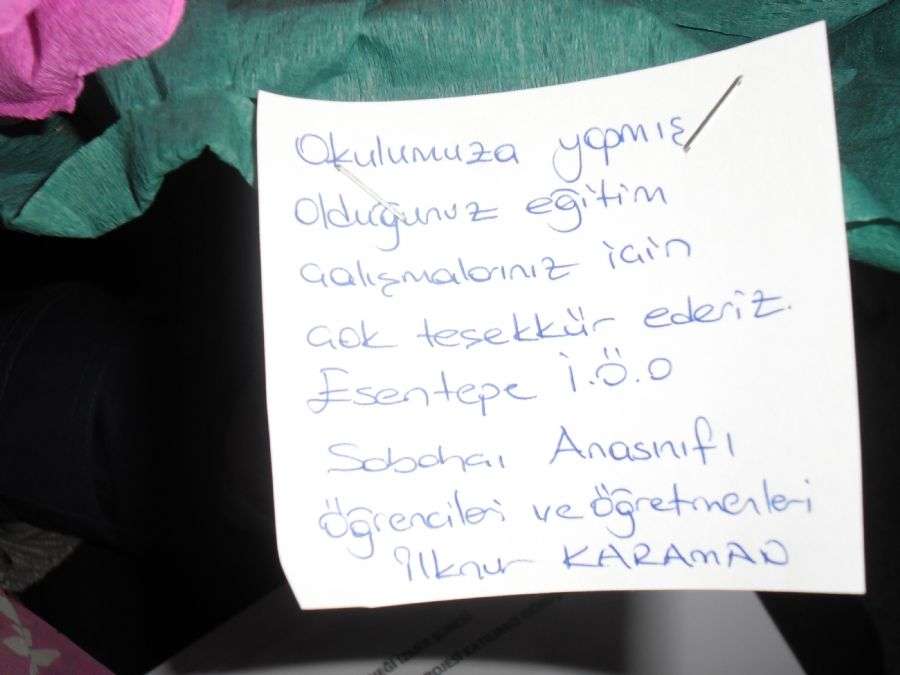 Okulumuza yapmış
olduğunuz eğitim
çalışmalarınız için
çok teşekkür ederiz.
Esentepe İ.Ö.O
Sabahçı Anasınıfı
öğrencileri ve öğretmenleri
İlknur KARAMAN